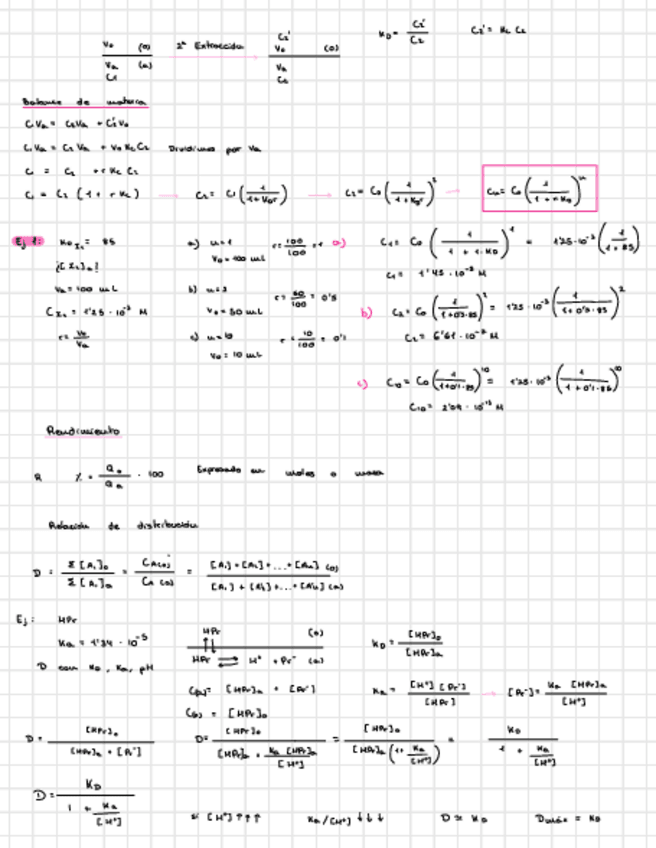 V₀ (o) 2ª Extracción C₂' V₀ (o) K_D = C₂'/C₂ C₂' = K_C C₂
Va (a) Va
C₁ C₂
Balance de materia
C₁Va = C₂Va + C₂'V₀
C₁Va = C₂Va + V₀ K_C C₂ Dividimos por Va
C₁ = C₂ + r K_C C₂
C₁ = C₂ (1 + r K_C) → C₂ = C₁ (1/(1 + K_D r)) → C₂ = C₀ (1/(1 + K_D r))² → Cₙ = C₀ (1/(1 + r K_D))ⁿ
Ej 1: K_D I₂ = 85
¿[I₂]ₐ?
Va = 100 mL
C I₂ = 1'25 · 10⁻³ M
r = V₀/Va
a) n = 1 r = 100/100 = 1
V₀ = 100 mL
b) n = 2 r = 50/100 = 0'5
V₀ = 50 mL
c) n = 10 r = 10/100 = 0'1
V₀ = 10 mL
a) C₁ = C₀ (1/(1 + 1·K_D))¹ = 1'25·10⁻³ (1/(1 + 85))
C₁ = 1'45 · 10⁻⁵ M
b) C₂ = C₀ (1/(1 + 0'5·85))² = 1'25·10⁻³ (1/(1 + 0'5·85))²
C₂ = 6'61 · 10⁻⁷ M
c) C₁₀ = C₀ (1/(1 + 0'1·85))¹⁰ = 1'25·10⁻³ (1/(1 + 0'1·85))¹⁰
C₁₀ = 2'09 · 10⁻¹³ M
Rendimiento
R % = Q₀/Qₐ · 100 Expresado en moles o masa
Relación de distribución
D = Σ[Aᵢ]₀/Σ[Aᵢ]ₐ = C_A(o)/C_A(a) = ([A₁] + [A₂] + ... + [Aₙ] (o))/([A₁] + [A₂] + ... + [Aₙ] (a))
Ej: HPr
Ka = 1'34 · 10⁻⁵
D con K_D, Ka, pH
HPr (o)
HPr ⇌ H⁺ + Pr⁻ (a)
K_D = [HPr]₀/[HPr]ₐ
C(a) = [HPr]ₐ + [Pr⁻]
C(o) = [HPr]₀
Ka = [H⁺][Pr⁻]/[HPr] → [Pr⁻] = Ka [HPr]ₐ/[H⁺]
D = [HPr]₀/([HPr]ₐ + [Pr⁻]) D = [HPr]₀/([HPr]ₐ + Ka [HPr]ₐ/[H⁺]) = [HPr]₀/([HPr]ₐ (1 + Ka/[H⁺])) = K_D/(1 + Ka/[H⁺])
D = K_D/(1 + Ka/[H⁺])
si [H⁺] ↑↑↑ Ka/[H⁺] ↓↓↓ D ≃ K_D Dmáx = K_D